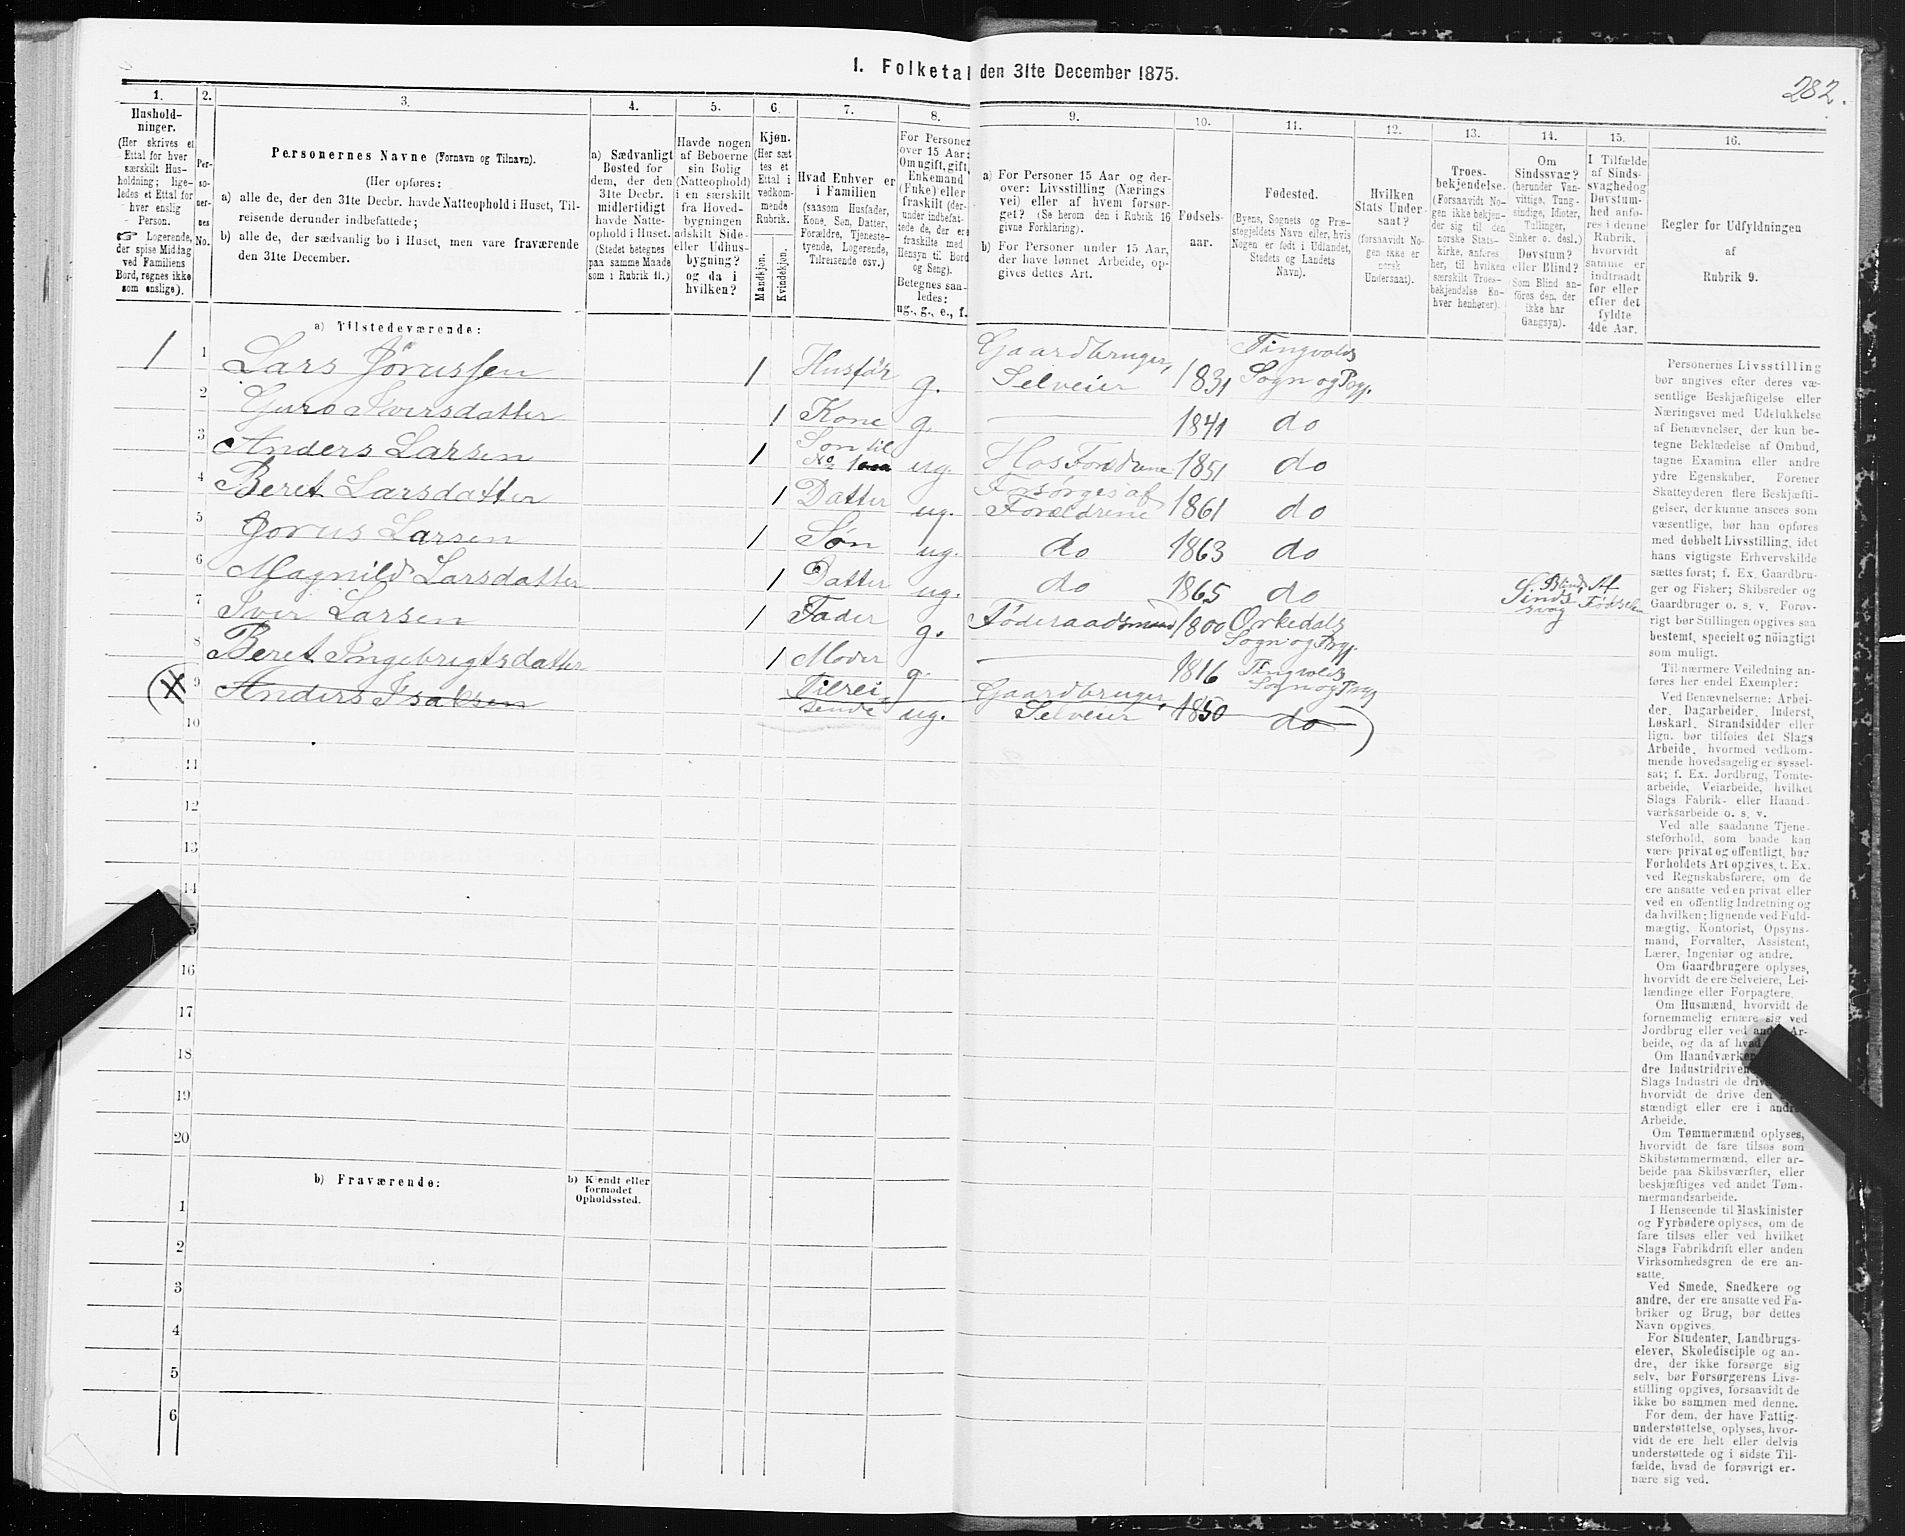 I. Folketal den 31te December 1875.
282.
1.
Hushold-
ninger.
(Her skrives et
Ettal for hver
særskilt Hus-
holdning; lige-
ledes et Ettal for
hver enslig
Person.
☞ Logerende,
der spise Middag
ved Familiens
Bord, regnes ikke
som enslige).
2.
Per-
so-
ner-
nes
No.
3.
Personernes Navne (Fornavn og Tilnavn).
(Her opføres:
a) alle de, der den 31te Decbr. havde Natteophold i Huset, Til-
reisende derunder indbefattede;
b) alle de, der sædvanlig bo i Huset, men vare fraværende
den 31te December.
4.
a) Sædvanligt
Bosted for
dem, der den
31te Decbr.
midlertidigt
havde Natte-
ophold i Huset.
(Stedet betegnes
paa samme Maade
som i Rubrik 11.)
5.
Havde nogen
af Beboerne
sin Bolig
(Natteophold)
i en særskilt
fra Hoved-
bygningen
adskilt Side-
eller Udhus-
bygning?
og da i
hvilken?
6.
Kjøn.
(Her sæt
tes et
Ettal i
vedkom-
mende
Rubrik.
Mandkjøn.
Kvindekjøn.
7.
Hvad Enhver er
i Familien
(saasom Husfader,
Kone, Søn, Datter,
Forældre, Tjeneste-
tyende, Logerende,
Tilreisende osv.)
8.
For Personer
over 15 Aar:
Om ugift, gift,
Enkemand
(Enke) eller
fraskilt (der-
under indbefat-
tede de, der ere
fraskilte med
Hensyn til Bord
og Seng).
Betegnes saa-
ledes:
ug., g., e., f.
9.
a) For Personer 15 Aar og der-
over: Livsstilling (Nærings
vei) eller af hvem forsør-
get? (Se herom den i Rubrik 16
givne Forklaring).
b) For Personer under 15 Aar,
der have lønnet Arbeide, op-
gives dettes Art.
10.
Fødsels-
aar.
11.
Fødested.
(Byens, Sognets og Præ-
stegjeldets Navn eller, hvis
Nogen er født i Udlandet,
Stedets og Landets
Navn).
12.
Hvilken
Stats Under-
saat?
(forsaavidt No-
gen ikke er
norsk
Undersaat).
13.
Troes-
bekjendelse.
(Forsaavidt No-
gen ikke bekjen-
der sig til den
norske Stats-
kirke, anføres
her, til hvilken
særskilt Troes-
bekjendelse En-
hver henhører).
14.
Om
Sindssvag?
(herunder Van-
vittige, Tung-
sindige, Idioter,
Tullinger,
Sinker o. desl.)
Døvstum?
eller Blind?
(Som Blind an-
føres den, der
ikke har
Gangsyn).
15.
I Tilfælde
af Sinds-
svaghed og
Døvstum-
hed anfø-
res i denne
Rubrik,
hvorvidt
samme er
indtraadt
før eller
efter det
fyldte
4de Aar.
16.
Regler for Udfyldningen
af
Rubrik 9.
a) Tilstedeværende:
1 1 Lars Jørussen 1 Husfar g. Gaardbruger, Selveier 1831 Tingvolds Sogn og Prgj.
2 Guro Iversdatter 1 Kone g. 1841 do
3 Anders Larsen 1 Søn til No 1 ug. Hos Forældrene 1851 do
4 Beret Larsdatter 1 Datter ug. Forsørges af Forældrene 1861 do
5 Jorus Larsen 1 Søn ug. do 1863 do
6 Magnild Larsdatter 1 Datter ug. do 1865 do Blind Sindssvag Af Fødselen
7 Iver Larsen 1 Fader g. Føderaadsmand 1800 Orkedals Sogn og Prgj.
8 Beret Ingebrigtsdatter 1 Moder g. 1816 Tingvolds Sogn og Prgj
(1 9 Anders Isaksen Tilreisende ug. Gaardbruger, Selveier 1850 do)
10
11
12
13
14
16
17
18
19
20
b) Fraværende:
b) Kjendt eller
formodet
Opholdssted.
1
2
3
4
5
6
Personernes Livsstilling
bør angives efter deres væ-
sentlige Beskjæftigelse eller
Næringsvei med Udelukkelse
af Benævnelser, der kun be-
tegne Beklædelse af Ombud,
tagne Examina eller andre
ydre Egenskaber. Forener
Skatteyderen flere Beskjæfti-
gelser, der kunne ansees som
væsentlige, bør han opføres
med dobbelt Livsstilling, idet
hans vigtigste Erhvervskilde
sættes først; f. Ex. Gaardbru-
ger og Fisker; Skibsreder og
Gaardbruger o. s. v. Forøv-
rigt bør Stillingen opgives saa
bestemt, specielt og nöiagtigt
som muligt.
Til nærmere Veiledning an-
føres her endel Exempler:
Ved Benævnelserne: Arbei-
der, Dagarbeider, Inderst,
Løskarl, Strandsidder eller
lign. bør tilføies det Slags
Arbeide, hvormed vedkom-
mende hovedsagelig er syssel-
sat; f. Ex. Jordbrug, Tomte-
arbeide, Veiarbeide, hvilket
Slags Fabrik- eller Haand-
værksarbeide o. s. v.
Ved alle saadanne Tjene-
steforhold, som baade kan
være privat og offentligt, bør
Forholdets Art opgives, t. Ex.
ved Regnskabsførere, om de
ere ansatte ved en privat eller
ved en offentlig Indretning og
da hvilken; lignende ved Fuld-
mægtig, Kontorist, Opsyns-
mand, Forvalter, Assistent,
Lærer, Ingeniør og andre.
Om Gaardbrugere oplyses,
hvorvidt de ere Selveiere, Lei-
lændinge eller Forpagtere.
Om Husmænd, hvorvidt de
fornemmelig ernære sig ved
Jordbrug eller ved andet Ar-
beide, og da af hvad
Om Haandværkere
dre Industridrivende
Slags Industri de drive
hvorvidt de drive den
stændigt eller ere i andres
Arbeide.
Om Tømmermænd oplyses,
hvorvidt de fare tilsøs som
Skibstømmermænd, eller ar-
beide paa Skibsværfter, eller
beskjæftiges ved andet Tøm-
mermandsarbeide.
I Henseende til Maskinister
og Fyrbødere oplyses, om de
fare tilsøs eller ved hvilket
Slags Fabrikdrift eller anden
Virksomhedsgren de ere an-
satte.
Ved Smede, Snedkere og
andre, der ere ansatte ved Fa-
briker og Brug, bør dettes
Navn opgives.
For Studenter, Landbrugs-
elever, Skoledisciple og an-
dre, der ikke forsørge sig
selv, bør Forsørgerens Livs-
stilling opgives, forsaavidt de
ikke bo sammen med denne.
For dem, der have Fattig-
understøttelse, oplyses, hvor-
vidt de ere helt eller delvis
understøttede og i sidste Til-
fælde, hvad de forøvrigt er-
nære sig ved.